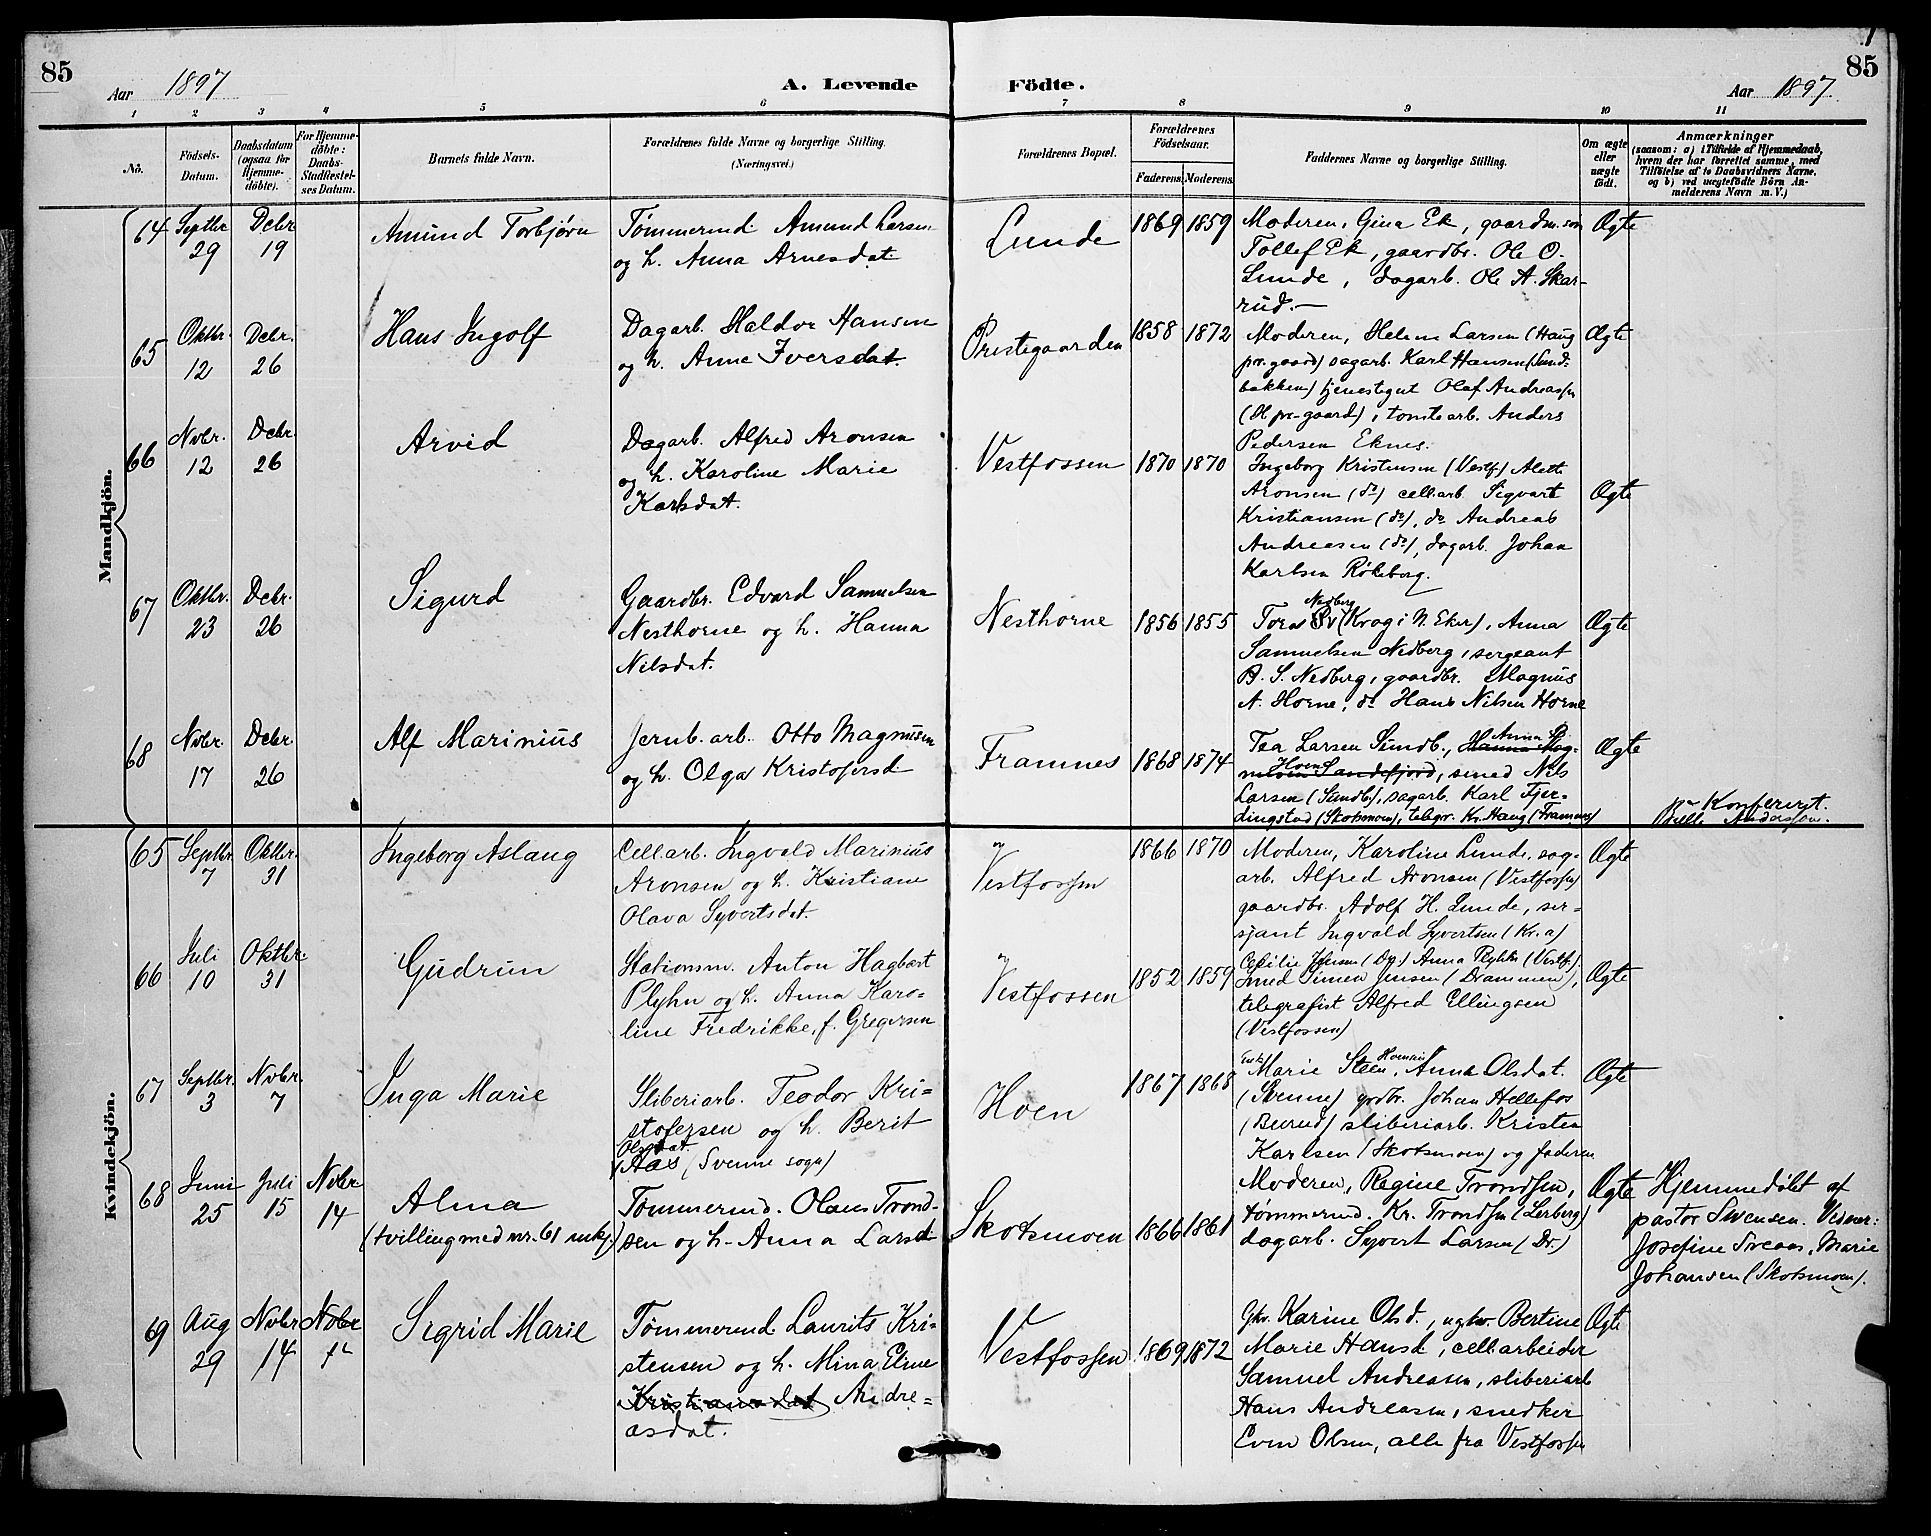 85
Aar 1897
A. Levende Fødte.
Aar 1897.
85
1 2 3 4 5 6 7 8 9 10 11
No.
Fødsels-Datum.
Daabsdatum (ogsaa for Hjemmedøbte).
For Hjemmedøbte: Daabs-Stadfæstelses Datum.
Barnets fulde Navn.
Forældrenes fulde Navne og borgerlige Stilling. (Næringsvei.)
Forældrenes Bopæl.
Forældrenes Fødselsaar.
Faderens. Moderens.
Faddernes Navne og borgerlige Stilling.
Om ægte eller uægte født.
Anmærkninger
(saasom: a) i Tilfælde af Hjemmedaab,
hvem der har forrettet samme, med
Tilføielse af to Daabsvidners Navne,
og b) ved uægtefødte Børn Anmelderens Navn m. V.)
Mandkjøn.
64 Septbr 29 Decbr 19
Amund Torbjørn
Tømmermd. Amund Larsen
og h. Anna Arnesdat.
Lunde
1869 1859
Moderen, Gina Ek, gaardm.søn
Tollef Ek, gaardbr. Ole O.
Lunde, dagarb. Ole A. Skar-
rud.—
Ægte
65 Oktbr. 12 Decbr. 26
Hans Ingolf
Dagarb. Haldor Hansen
og h. Anne Iversdat.
Prestegaarden
1858 1872
Moderen, Helene Larsen (Haug
pr.gaard) sagarb. Karl Hansen (Sund-
bakken) tjenestegut Olaf Andreassen
(H. pr-gaard), tomtearb. Anders
Pedersen Eknes.
Ægte
66 Novbr. 12 Decbr. 26
Arvid
Dagarb. Alfred Aronsen
og h. Karoline Marie
Karlsdat.
Vestfossen
1870 1870
Ingeborg Kristensen (Vestf.) Alette
Aronsen (do) cell.arb. Sigvart
Kristiansen (do), do Andreas
Andreasen (do), dagarb. Johan
Karlsen Røkeberg.
Ægte
67 Oktbr. 23 Decbr. 26
Sigurd
Gaardbr. Edvard Samuelsen
Nesthorne og h. Hanna
Nilsdat.
Nesthorne
1856 1855
Nedberg
Tora (Krog i N. Eker), Anna
Samuelsen Nedberg, sergeant
B. S. Nedberg, gaardbr. Magnus
A. Horne, do Hans Nilsen Horne
Ægte
68 Novbr. 17 Decbr. 26
Alf Marinius
Jernb. arb. Otto Magnussen
og h. Olga Kristofersd
Framnes
1868 1874
Tea Larsen Sundb., Hanna Mag-
Hoen Sandefjord, smed Nils
Larsen (Sundb.), sagarb. Karl Fjer-
dingstad (Skotsmoen), telegr. Kr. Haug (Framnes)
Ægte
Konfereret.
Kvindekjøn.
65 Septbr 7 Oktbr. 31
Ingeborg Aslaug
Cell.arb. Ingvald Marinius
Aronsen og h. Kristiane
Olava Syvertsdat.
Vestfossen
1866 1870
Moderen, Karoline Lunde, sag-
arb. Alfred Aronsen (Vestfossen)
gaardbr. Adolf H. Lunde, ser-
sjant Ingvald Syvertsen (Kr.a)
Ægte
66 Juli 10 Oktbr. 31
Gudrun
Stationsm. Anton Hagbart
Plyhn og h. Anna Karo-
line Fredrikke, f. Gregersen
Vestfossen
1852 1859
Cecilie Jensen (Do) Anna Plyhn (Vestf.)
smed Simen Jensen (Drammen),
telegrafist Alfred Ellingsen
(Vestfossen)
Ægte
67 Septbr. 3 Novbr. 7
Inga Marie
Sliberiarb. Teodor Kri-
stofersen og h. Berit
Olsdat.
Aas (Svenne sogn)
Hoen
1867 1868
Enk. Marie Steen, Anna Olsdat.
(Svenne) grdbr. Johan Hellefos
(Burud) sliberiarb. Kristen
Karlsen (Skotsmoen) og faderen
Ægte
68 Juni 25 Juli 15 Novbr 14
Alma
(tvilling med nr. 61 mkj.)
Tømmermd. Olaus Trond-
sen og h. Anna Larsd
Skotsmoen
1866 1861
Moderen, Regine Trondsen,
tømmermd. Kr. Trondsen (Lerberg)
dagarb. Syvert Larsen (Dr.)
Ægte
Hjemmedøbt af
pastor Svensen. Vidner:
Josefine Sveaas, Marie
Johansen (Skotsmoen).
69 Aug 29 Novbr 14 Novbr
Sigrid Marie
Tømmermd. Laurits Kri-
stensen og h. Mina Eline
Kristiansdat Andre-
asdat.
Vestfossen
1869 1872
Gkr. Karine Olsd., ugkv. Bertine
Marie Hansd, cell.arbeider
Samuel Andreasen, sliberiarb
Hans Andreasen, snedker
Even Olsen, alle fra Vestfossen
Ægte